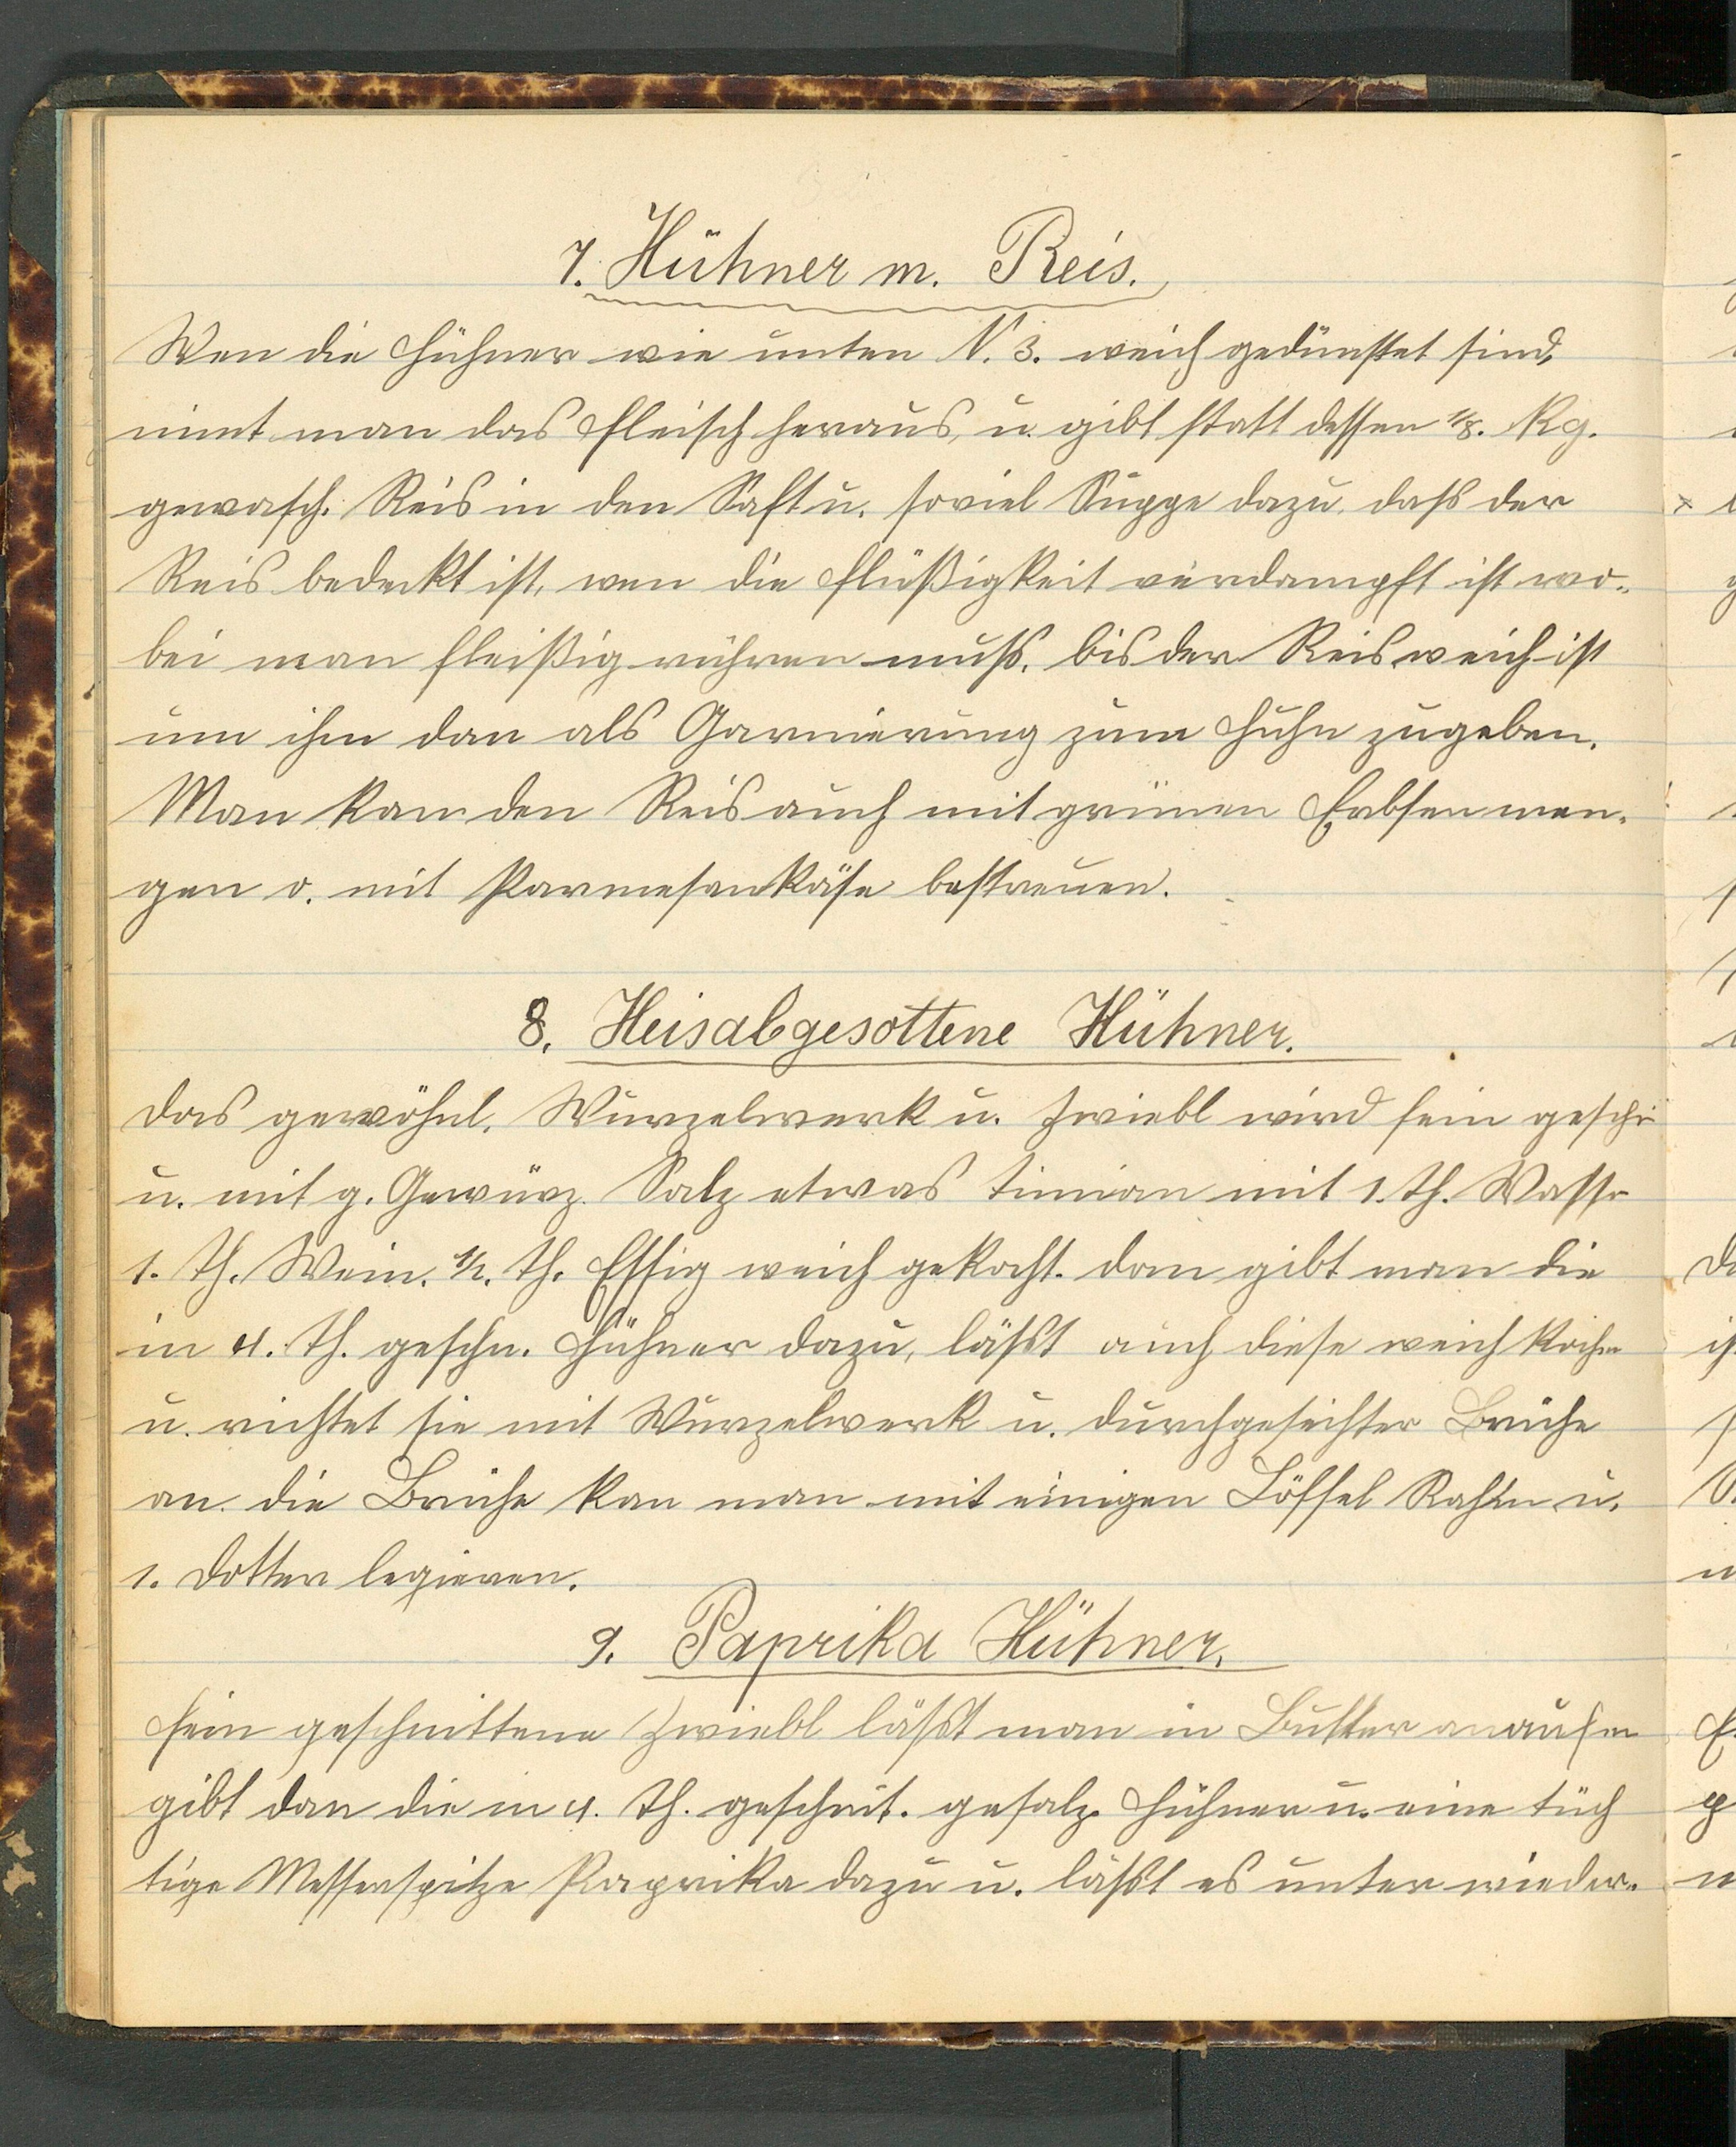 7. Hühner m. Reis.
Wen die Hühner wie unten N. 3. weich gedünstet sind,
nimt man das Fleisch heraus, u. gibt statt dessen 1/8. Kg.
gewasch. Reis in den Saft u. soviel Suppe dazu, daß der
Reis bedeckt ist, wen die Flüßigkeit verdampft ist wo-
bei man fleißig rühren muß, bis der Reis weich ist
um ihn dan als Garnierung zum Huhn zugeben.
Man kan den Reis auch mit grünen Erbsen men-
gen o. mit Parmesankäse bestreuen.
8. Heisabgesottene Hühner.
Das gewöhnl. Wurzelwerk u. Zwiebl wird fein gesch
u. mit g. Gewürz. Salz etwas Timian mit 1. Th. Wasser
1. Th. Wein. 1/2. Th. Essig weich gekocht. dan gibt man die
in 4. Th. geschn. Hühner dazu, läßt auch diese weich kochen
u. richtet sie mit Wurzelwerk u. durchgeseihter Brühe
an. die Brühe kan man mit einigen Löffel Rahm u.
1. Dotter legieren.
9. Paprika Hühner.
Fein geschnittene Zwiebl läßt man in Butter
gibt dan die in 4. Th. geschnit. gesalz. Hühner u. eine tüch
tige Messerspitze Paprika dazu u. läßt es unter wieder-